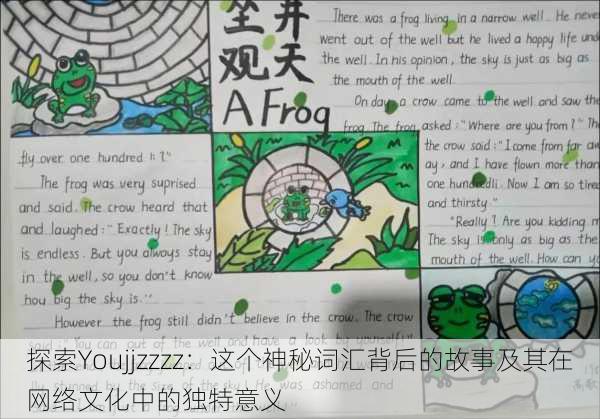 坐井
观天
A Frog
There was a frog living in a narrow well. He never
went out of the well but he lived a happy life und
the well. In his opinion, the sky is just as big as
the mouth of the well.
On day, a crow came to the well and saw the
frog. The frog asked: "Where are you from?" The
the crow said: "I come from far aw
ay, and I have flown more than
one hundred li. Now I am so tired
and thirsty."
"Really? Are you kidding m
The sky is only as big as the
mouth of the well. How can yo
fly over one hundred li?"
The frog was very suprised
and said. The crow heard that
and laughed: "Exactly! The sky
is endless. But you always stay
in the well, so you don't know
hou big the sky is."
However the frog still didn't believe in the crow. The crow
said: "You can out of the well and have a look by yourself!"
the size of the sky! He was ashamed and
探索Youjjzzzz：这个神秘词汇背后的故事及其在
网络文化中的独特意义